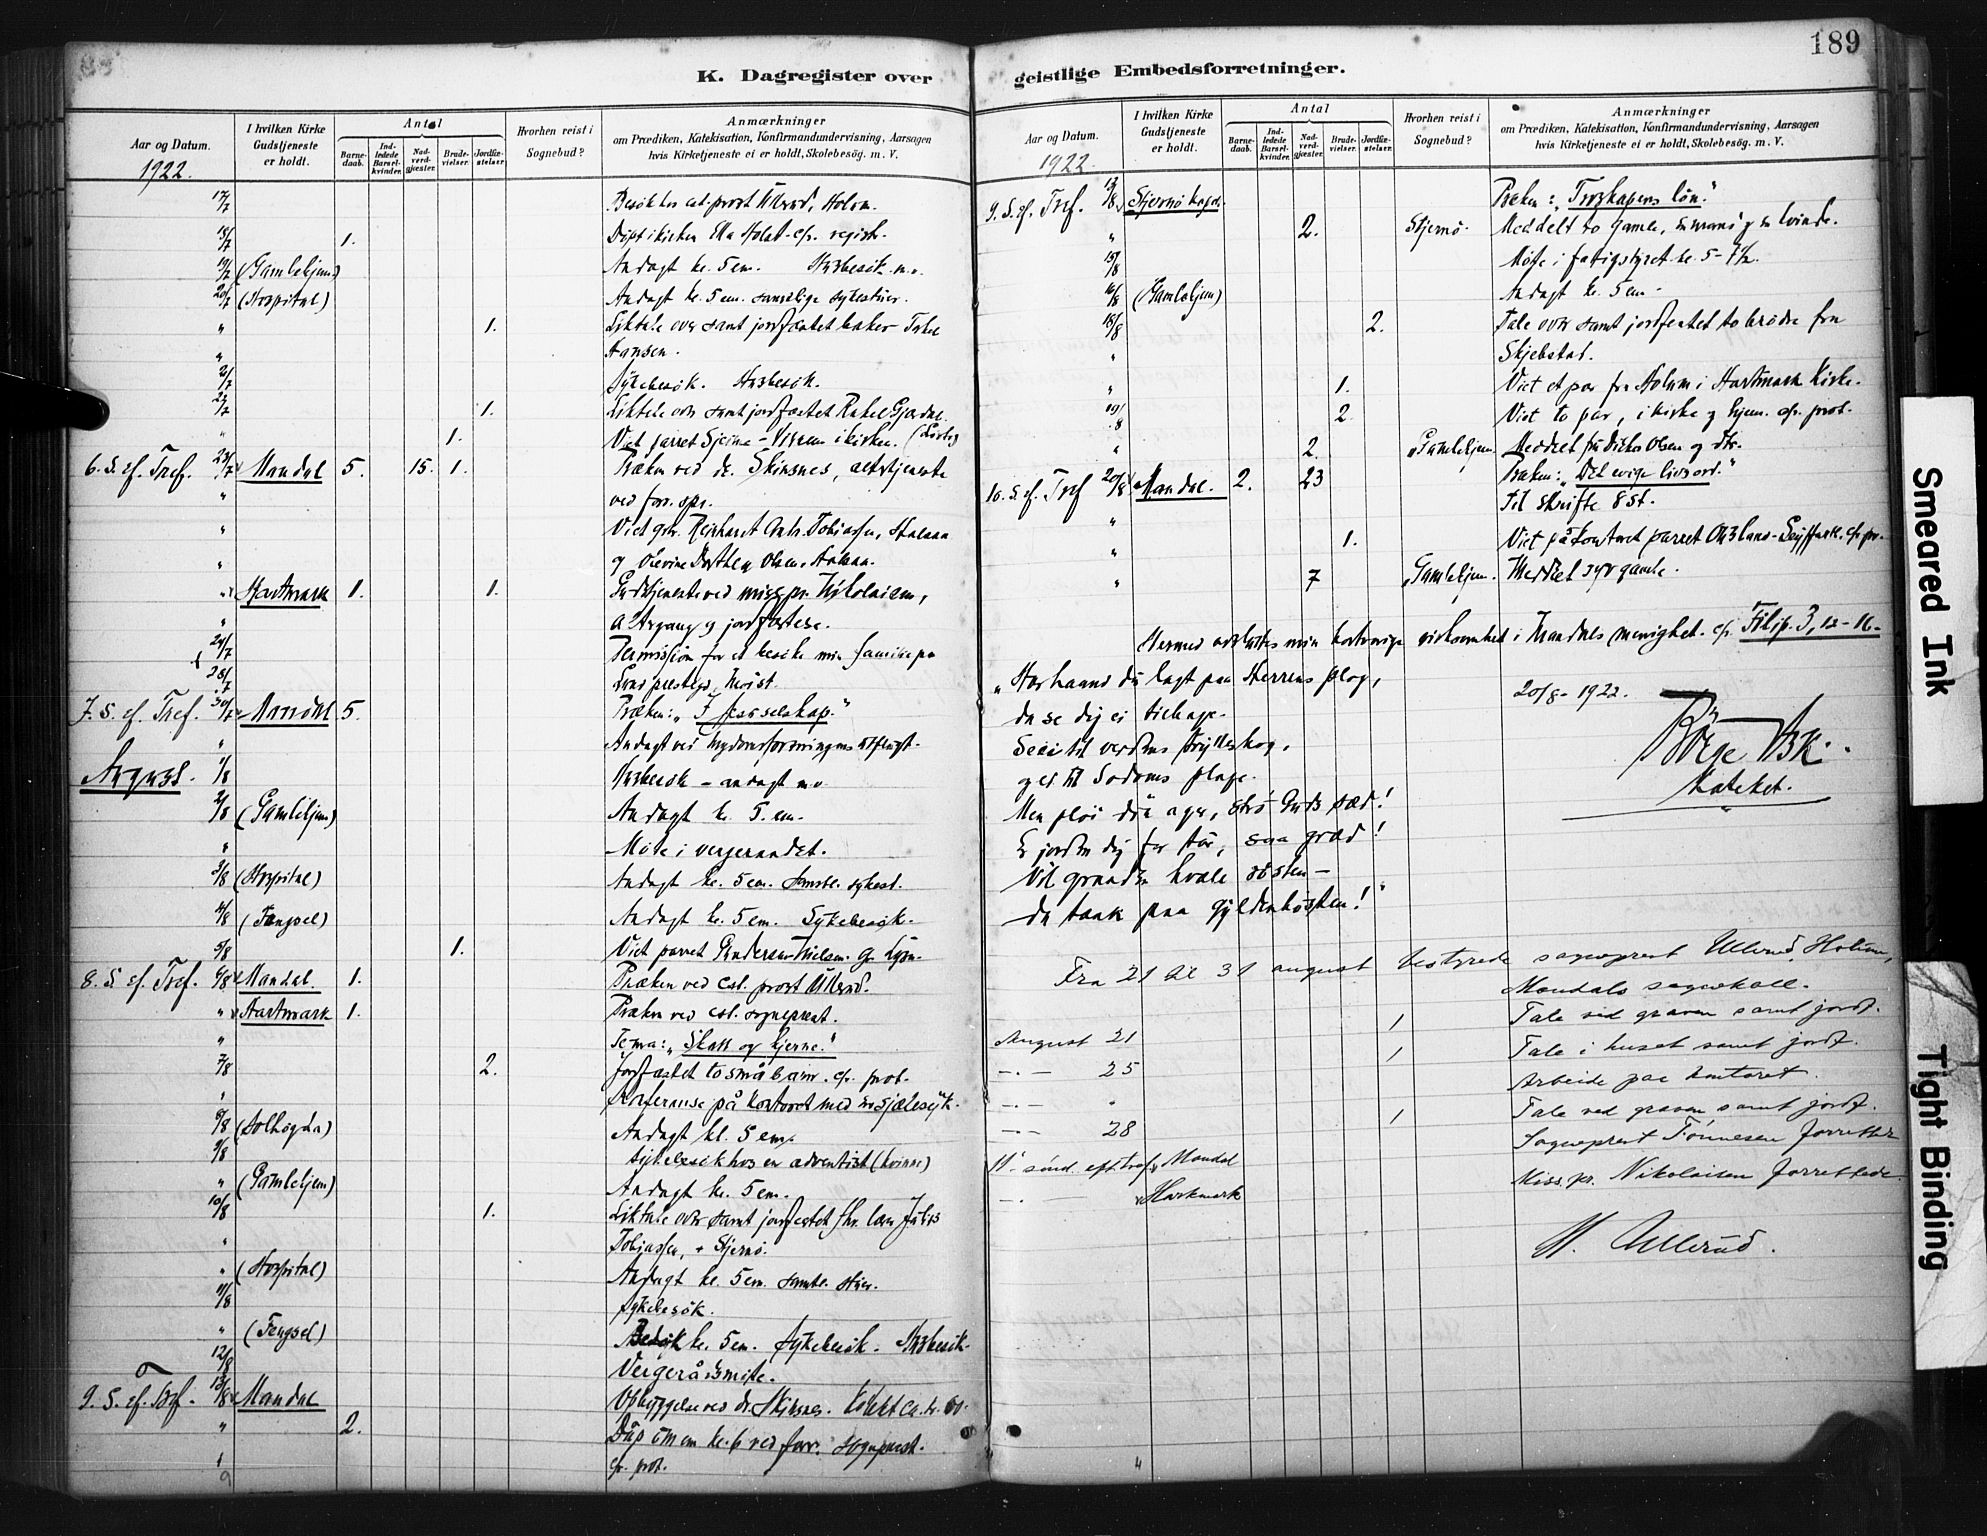 189
K. Dagregister over
geistlige Embedsforretninger.
Aar og Datum.
1922.
I hvilken Kirke
Gudstjeneste
er holdt.
Antal
Barne-
daab.
Ind-
ledede
Barsel-
kvinder.
Nad-
verd-
gjæster.
Brude-
vielser.
Jordfæ-
stelser.
Hvorhen reist i
Sognebud?
Anmærkninger
om Prædiken, Katekisation, Konfirmandundervisning, Aarsagen
hvis Kirketjeneste ei er holdt, Skolebesøg. m. V.
17/7 Besök hos cst. prost Ullerud, Holum.
18/7 1. Döpt i kirken cfr. registr.
19/7 (Gamlehjem) Andagt kl. 5 em. Husbesök m.v.
20/7 (Hospital) Andagt kl. 5 em. samtlige sykestuer.
" 1. Liktale over samt jordfæstet baker
" Hansen.
21/7 Sykebesök. Husbesök.
22/7 1. Liktale over samt jordfæstet Rakel Gjerdal.
" 1. Viet parret i kirken.
6. S. ef. Tref. 23/7 Mandal 5. 15. 1. Præken ved dr. Skinsnes, altertjeneste
" ved forr. spr.
" Viet Reinhardt Tobiassen,
" og Olsen,
" Hartmark 1. 1. Gudstjeneste ved miss.pr. Nikolaisen,
" altergang og jordfæstelse.
24/7 Permission for at besöke min familie paa
28/7 prestegd,
7. S. ef. Tref. 30/7 Mandal 5. Præken: "I Jesu selskap."
" Andagt ved ungdomsforeningens utflugt.
August. 1/8 Husbesök – andagt m.v.
2/8 (Gamlehjem) Andagt kl. 5. em.
" Möte i vergeraadet.
3/8 (Hospital) Andagt kl. 5 em. samtl. sykest.
4/8 (Fængsel) Andagt kl. 5 em. Sykebesök.
5/8 1. Viet parret Gundersen-Nielsen.
8. S. ef. Tref. 6/8 Mandal. 1. Præken ved cst. prost Ullerud.
" Hartmark 1. Præken ved cst. sogneprest.
" Tema: "Skall og kjerne."
7/8 2. Jordfæstet to små barn. cfr. prot.
" Konferanse på kontoret med en sjælesyk.
8/8 (Solhögda) Andagt kl. 5 em.
9/8 sykebesök hos en adventist (kvinne)
" (Gamlehjem) Andagt kl. 5 em.
10/8 1. Liktale over samt jordfæstet Julius
" Tobiassen, Skjernö.
" (Hospital) Andagt kl. 5 em. samtl. stuer.
11/8 sykebesök.
" (Fengsel) kl. 5 em. Sykebesök. Husbesök.
12/8 Vergerådsmöte.
9. S. ef. Tref. 13/8 Mandal Opbyggelse ved dr. Skinsnes. Kollekt ca. kr. 60.
" 2. Dåp em kl. 6 ved forr. sogneprest.
cfr. prot.
Aar og Datum.
1922.
I hvilken Kirke
Gudstjeneste
er holdt.
Antal
Barne-
daab.
Ind-
ledede
Barsel-
kvinder.
Nad-
verd-
gjæster.
Brude-
vielser.
Jordfæ-
stelser.
Hvorhen reist i
Sognebud?
Anmærkninger
om Prædiken, Katekisation, Konfirmandundervisning, Aarsagen
hvis Kirketjeneste ei er holdt, Skolebesøg. m. V.
9. S. ef. Tref. 13/8 Skjernö kapel. Præken: "Troskapens lön."
" 2. Skjernö. Meddelt to gamle, en mand og en kvinde.
15/8 Möte i fatigstyret kl. 5–7½.
16/8 (Gamlehjem) Andagt kl. 5 em.
18/8 2. Tale over samt jordfæstet to brödre fra
" Skjebstad.
" 1. Viet et par fra Holum i Hartmark Kirke.
19/8 2. Viet to par, i kirke og hjem. cfr. prot.
" 2. Gamlehjem. Meddelt fru Olsen og dtr.
10. S. ef. Tref 20/8 Mandal. 2. 23 Præken: "Det evige livs ord."
" Til skrifte 8 st.
" 1. Viet på kontoret parret
" 7 Gamlehjem. Meddelt syv gamle.
Hermed avsluttes min kortvarige virksomhet i Mandals menighet. cfr. Filip. 3, 12–16.
"Har haand du lagt paa Herrens plog,
da se dig ei tilbage.
Se ei til verdens tryllesskog,
og ei til Sodoms plage.
Men plöi din ager, strö Guds sæd!
Er jorden dig for tör, saa græd!
Vil graaden kvæle rösten –
da tænk paa gyldenhösten!"
20/8 – 1922.
Börge Ask.
Kateket.
Fra 21 til 31 august bestyrede sogneprest Ullerud, Holum,
Mandals sognekall.
August 21 1 Tale ved graven samt jordf.
–"– 25 1 Tale i huset samt jordf.
–"– " Arbeide paa kontoret.
–"– 28 1 Tale ved graven samt jordf.
11. sönd. eft. tref. Mandal Sogneprest Tönnesen forrettet
–"– Hartmark Miss.pr. Nikolaisen forrettede
H. Ullerud.
Smeared Ink
Tight Binding